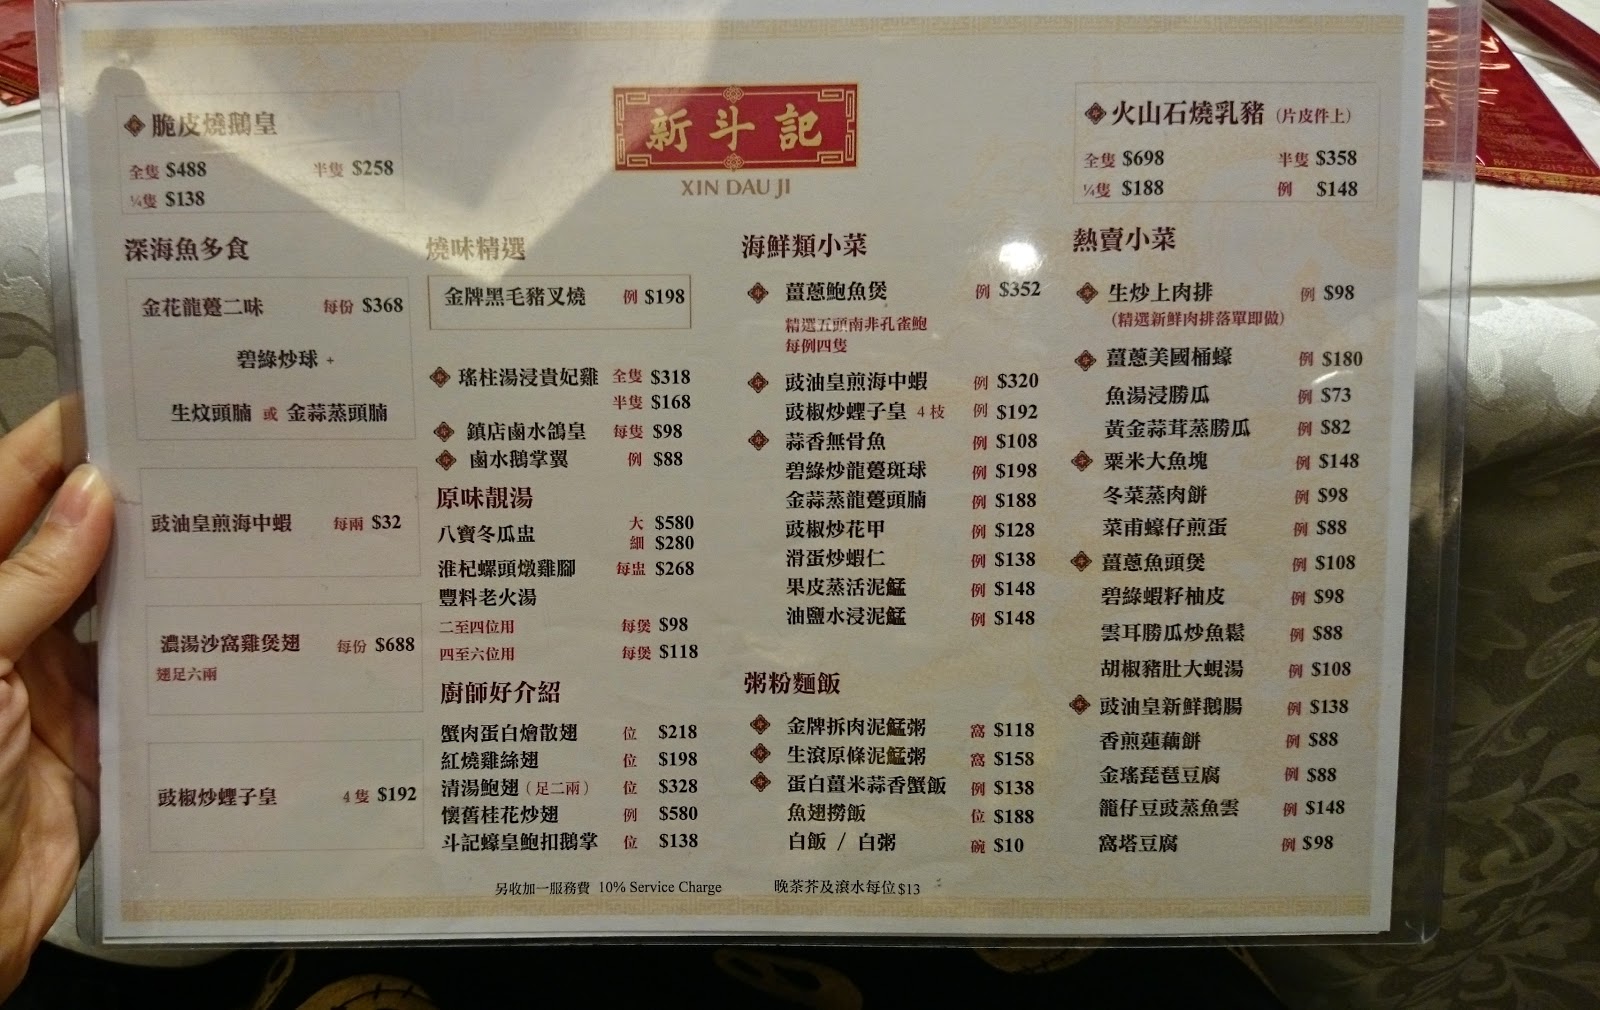 新斗記
XIN DAU JI
脆皮燒鵝皇
全隻 $488 半隻 $258
¼隻 $138
火山石燒乳豬 (片皮件上)
全隻 $698 半隻 $358
¼隻 $188 例 $148
深海魚多食
金花龍躉二味 每份 $368
碧綠炒球 +
生炆頭腩 或 金蒜蒸頭腩
豉油皇煎海中蝦 每兩 $32
濃湯沙窩雞煲翅 每份 $688
翅足六兩
豉椒炒蟶子皇 4隻 $192
燒味精選
金牌黑毛豬叉燒 例 $198
瑤柱湯浸貴妃雞 全隻 $318
半隻 $168
鎮店鹵水鴿皇 每隻 $98
鹵水鵝掌翼 例 $88
原味靚湯
八寶冬瓜盅 大 $580
細 $280
淮杞螺頭燉雞腳 每盅 $268
豐料老火湯
二至四位用 每煲 $98
四至六位用 每煲 $118
廚師好介紹
蟹肉蛋白燴散翅 位 $218
紅燒雞絲翅 位 $198
清湯鮑翅 (足二兩) 位 $328
懷舊桂花炒翅 例 $580
斗記蠔皇鮑扣鵝掌 位 $138
海鮮類小菜
薑蔥鮑魚煲 例 $352
精選五頭南非孔雀鮑
每例四隻
豉油皇煎海中蝦 例 $320
豉椒炒蟶子皇 4枝 例 $192
蒜香無骨魚 例 $108
碧綠炒龍躉斑球 例 $198
金蒜蒸龍躉頭腩 例 $188
豉椒炒花甲 例 $128
滑蛋炒蝦仁 例 $138
果皮蒸活泥鯭 例 $148
油鹽水浸泥鯭 例 $148
粥粉麵飯
金牌拆肉泥鯭粥 窩 $118
生滾原條泥鯭粥 窩 $158
蛋白薑米蒜香蟹飯 例 $138
魚翅撈飯 位 $188
白飯 / 白粥 碗 $10
熱賣小菜
生炒上肉排 例 $98
(精選新鮮肉排落單即做)
薑蔥美國桶蠔 例 $180
魚湯浸勝瓜 例 $73
黃金蒜茸蒸勝瓜 例 $82
粟米大魚塊 例 $148
冬菜蒸肉餅 例 $98
菜甫蠔仔煎蛋 例 $88
薑蔥魚頭煲 例 $108
碧綠蝦籽柚皮 例 $98
雲耳勝瓜炒魚鬆 例 $88
胡椒豬肚大蜆湯 例 $108
豉油皇新鮮鵝腸 例 $138
香煎蓮藕餅 例 $88
金瑤琵琶豆腐 例 $88
籠仔豆豉蒸魚雲 例 $148
窩塔豆腐 例 $98
另收加一服務費 10% Service Charge 晚茶芥及滾水每位$13